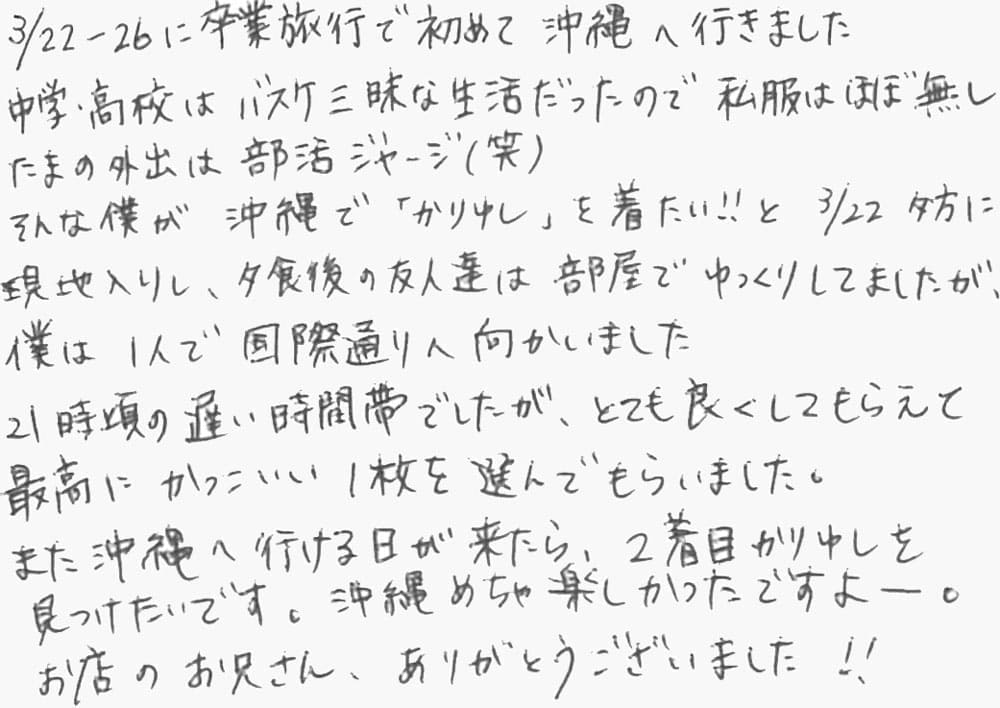 3/22-26に卒業旅行で初めて沖縄へ行きました
中学・高校はバスケ三昧な生活だったので私服はほぼ無し
たまの外出は部活ジャージ(笑)
そんな僕が沖縄で「かりゆし」を着たい!!と3/22夕方に
現地入りし、夕食後の友人達は部屋でゆっくりしてましたが、
僕は1人で国際通りへ向かいました
21時頃の遅い時間帯でしたが、とても良くしてもらえて
最高にかっこいい1枚を選んでもらいました。
また沖縄へ行ける日が来たら、2着目かりゆしを
見つけたいです。沖縄めちゃ楽しかったですよー。
お店のお兄さん、ありがとうございました!!